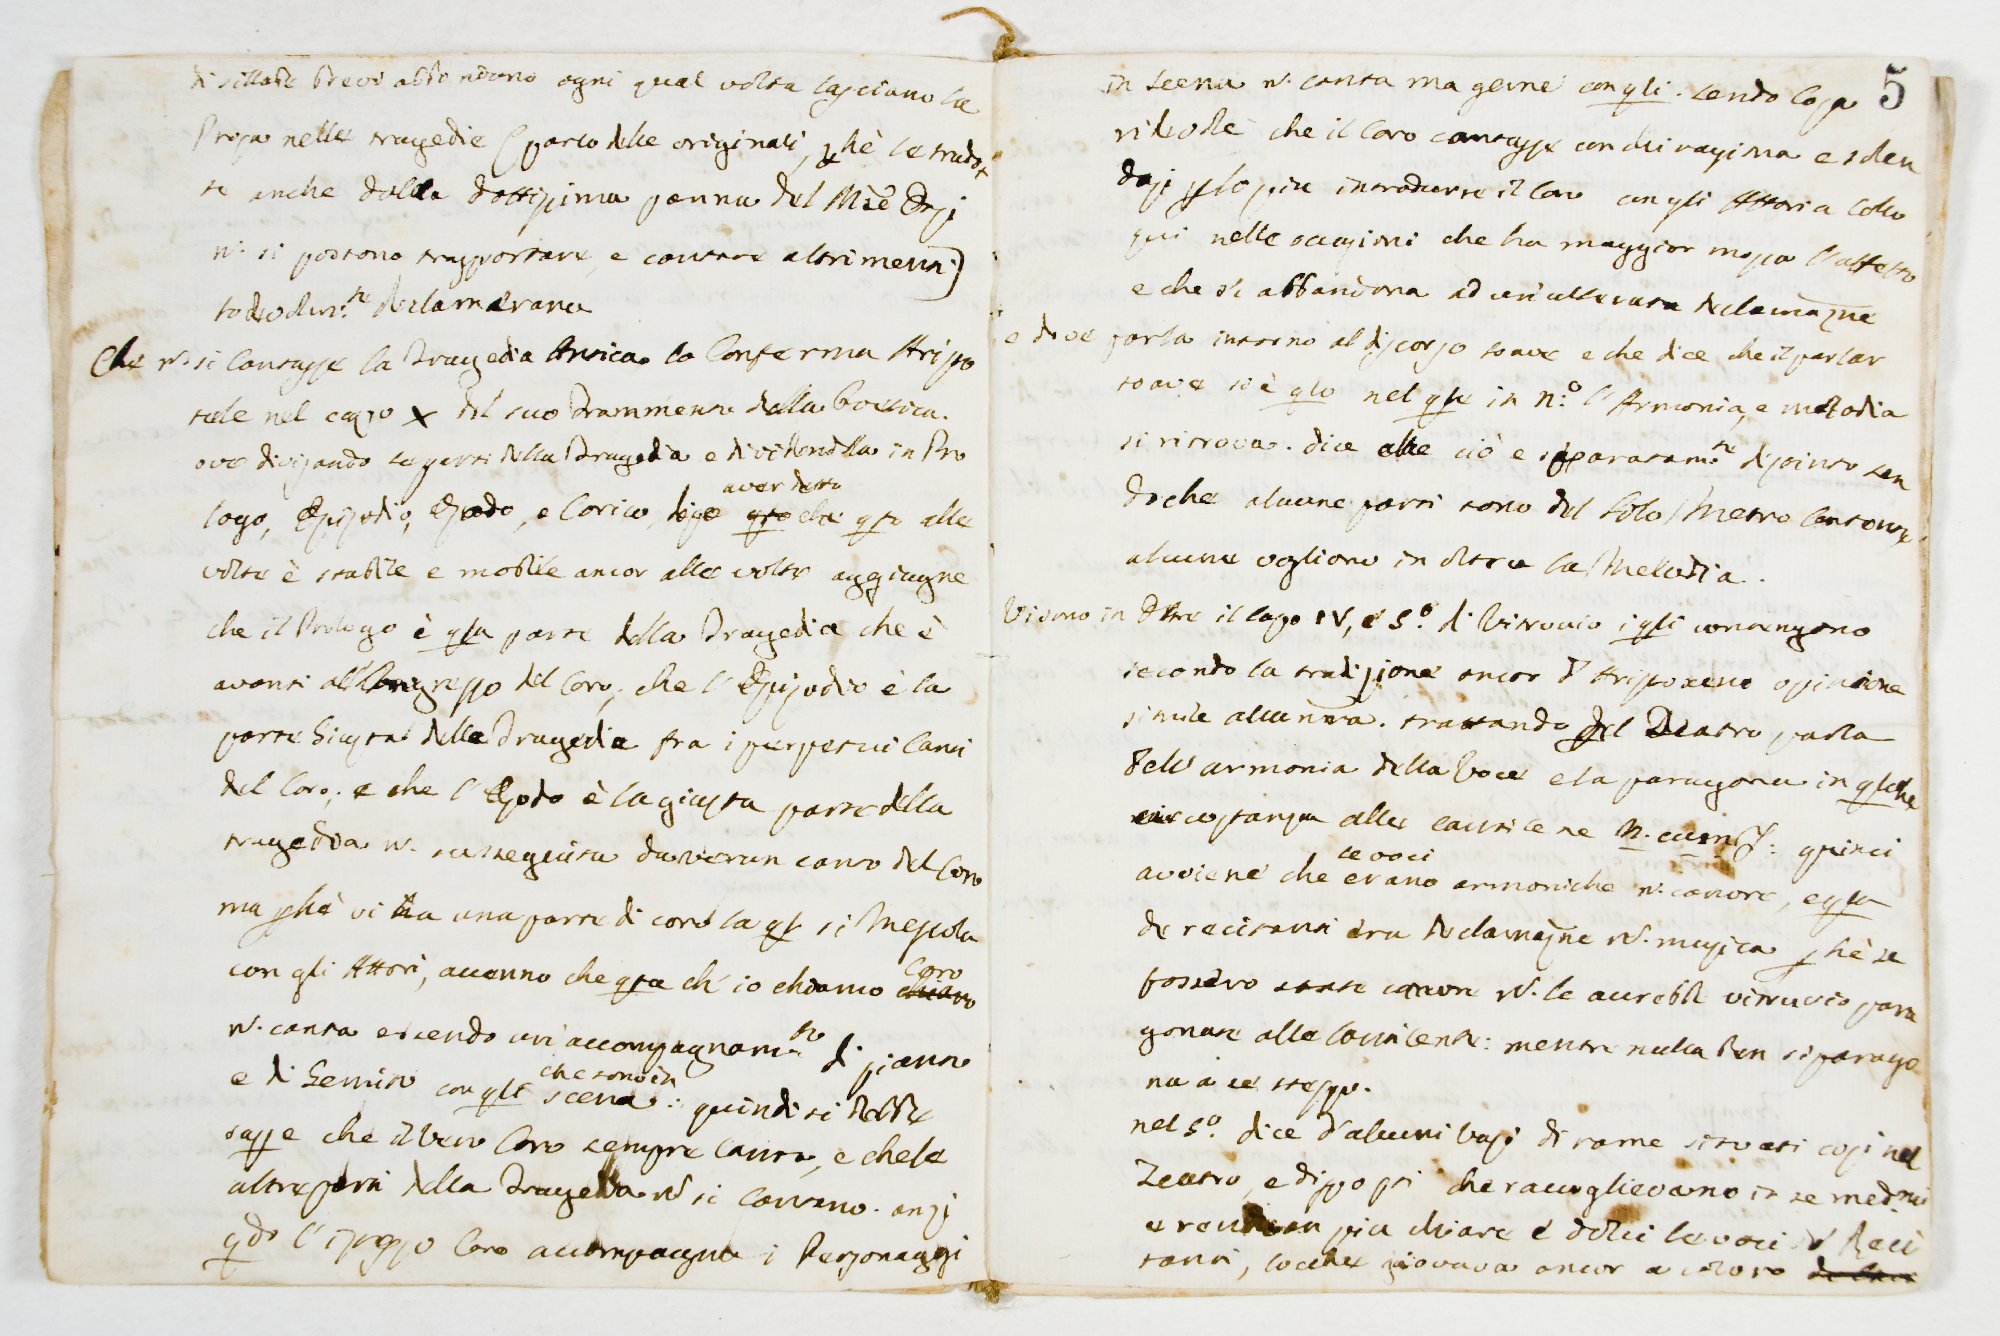 di sillabe brevi abbondano ogni qual volta lasciano la
Prosa nelle tragedie (parlo delle originali, pchè le tradot
te anche dalla dottissima penna del Mse Orsi
n. si possono trasportare, e cantare altrimenti)
sodiodun.te declamavano
Che n. si Cantasse la Tragedia Antica lo Conferma Aristo
tele nel capo X del suo Frammento della Poetica.
ove divisando le parti della Tragedia e dividendola in Pro
logo, Episodio, Esodo, e Corico,
aver detto
che qto alle
volte è stabile e mobile ancor alle volte aggiugne
che il Prologo è qlla parte della Tragedia che è
avanti all'Ingresso del Coro; che l'Episodio è la
parte Giusta della Tragedia fra i perpetui Canti
del Coro; e che l'Esodo è la giusta parte della
tragedia n. susseguita da verun canto del Coro
ma pchè vi ha una parte di coro la qle si Mescola
con gli Attori, accenno che qta ch' io chiamo
Coro
n. canta essendo un' accompagnam.to di pianto
che sono in
e di Gemito con qlli scena: quindi si debbe
sapre che il vero Coro sempre Canta, e che le
altre parti della Tragedia n. si Cantano. anzi
qdo l'istesso Coro accompagna i Personaggi
5
in Scena n. canta ma geme con qli. sendo Cosa
ridicola che il Coro cantasse con chi ragiona e solen
dosi p lo più introdurre il Coro con gli Attori a Collo
qui nelle occasioni che ha maggior mossa l'affetto
e che si abbandona ad un' alterata declamazne
e dove parla intorno al discorso soave e che dice che il parlar
soave si è qlo nel qle in n.o l'Armonia, e melodia
si ritrova. dice che ciò è separatam.te disgiunto sen
do che alcune parti sono del solo Metro Contente,
alcune vogliono in oltre la Melodia.
Vi sono in oltre il Capo IV, e 5o. di Vitruvio i qli contengono
secondo la tradizione ancor d' Aristoxeno opinione
simile alla nra. trattando del Teatro parla
dell' armonia della Voce e la paragona in qlche
circostanza alle cantilene n. : quinci
le voci
avviene che erano armoniche n. canore, e qlla
de recitanti era declamazne n. musica pchè se
fossero state canore n. le avrebbe vitruvio para
gonate alle Cantilene: mentre nulla ben si parago
na a se stesso.
nel 5o. dice d'alcuni Vasi di rame situati così nel
Teatro, e disposti che raccoglievano in se med.mi
e rendevan più chiare e dolci le voci d' Reci
tanti, locche giovava ancor a coloro